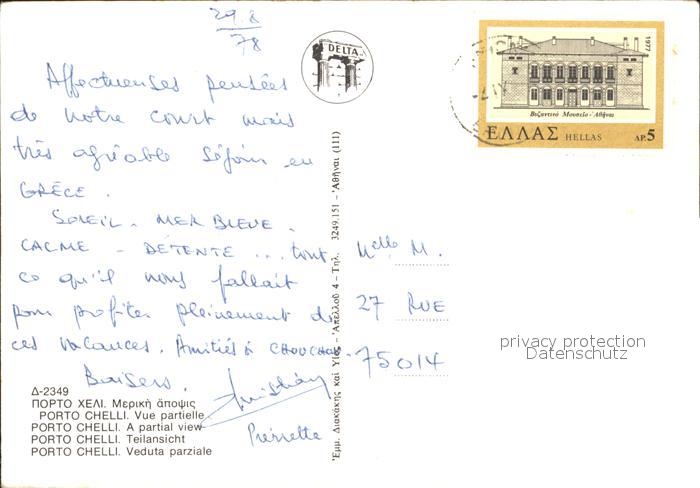 29.8
78
Affectueuses pensées
de notre court mais
très agréable séjour en
GRÈCE.
SOLEIL. MER BLEUE.
CALME - DÉTENTE ... tout
ce qu'il nous fallait
pour profiter pleinement de
ces vacances. Amitiés à CHOUCHOU.
Baisers.
Christian
Pierrette
Δ-2349
ΠΟΡΤΟ ΧΕΛΙ. Μερική ἄποψις
PORTO CHELLI. Vue partielle
PORTO CHELLI. A partial view
PORTO CHELLI. Teilansicht
PORTO CHELLI. Veduta parziale
DELTA
Ἐμμ. Διακάκης καὶ Υἱός - Ἀπέλλου 4 - Τηλ. 3249.151 - Ἀθῆναι (111)
1977
Βυζαντινό Μουσείο - Ἀθήναι
ΕΛΛΑΣ HELLAS ΔΡ. 5
Melle M.
27 RUE
75014
privacy protection
Datenschutz